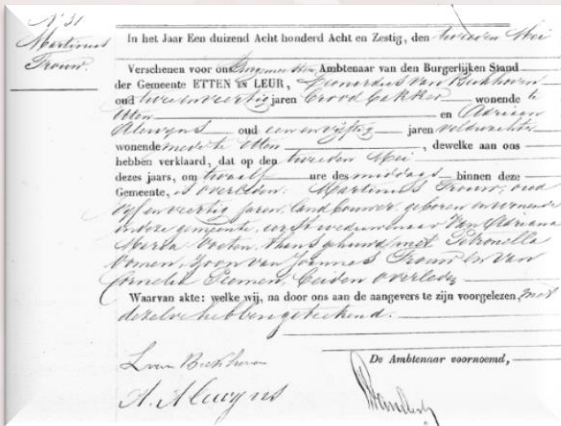 N° 31
Martinus
Trouw.
In het Jaar Een duizend Acht honderd Acht en Zestig, den tweeden Mei
Verschenen voor ons Burgemeester Ambtenaar van den Burgerlijken Stand
der Gemeente ETTEN EN LEUR, van Beckhoven
oud twee en veertig jaren Broodbakker wonende te
Etten en Adriaan
Alewijns oud een en vijftig jaren veldwachter
wonende mede te Etten, dewelke aan ons
hebben verklaard, dat op den tweeden Mei
dezes jaars, om twaalf ure des middags binnen deze
Gemeente, is overleden: Martinus Trouw, oud
vijf en veertig jaren, landbouwer, geboren en wonende
in deze gemeente, eerst weduwnaar van Adriana
Maria Voeten, thans gehuwd met Petronella
Oomen, Zoon van Joannes Trouw en van
Cornelia, beiden overleden
Waarvan akte: welke wij, na door ons aan de aangevers te zijn voorgelezen met
dezelve hebben geteekend.
L van Beckhoven
De Ambtenaar voornoemd,
A. Alewijns